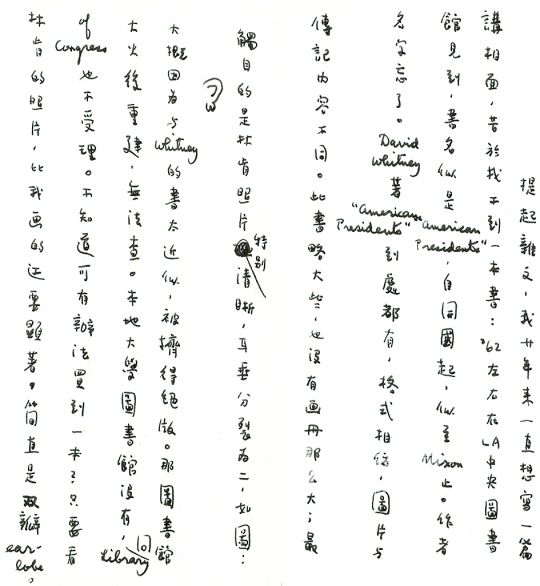 提起雜文，我廿年來一直想寫一篇
講相面，苦於找不到一本書：'62左右在LA中央圖書
館見到，書名似是"American Presidents"，自開國起，似至Nixon止。作者
名字忘了。David Whitney著"American Presidents"到處都有，格式相倣，圖片與
傳記內容不同。此書略大些，也沒有画冊那么大；最
觸目的是林肯照片特別清晰，耳垂分裂為二，如圖：
大概因為与Whitney的書太近似，被擠得絕版。那圖書館
大火後重建，無法查。本地大學圖書館沒有，Library
of Congress也不受理。不知道可有辦法買到一本？只要看
林肯的照片，比我画的还要顯著。簡直是双瓣ear-lobe。